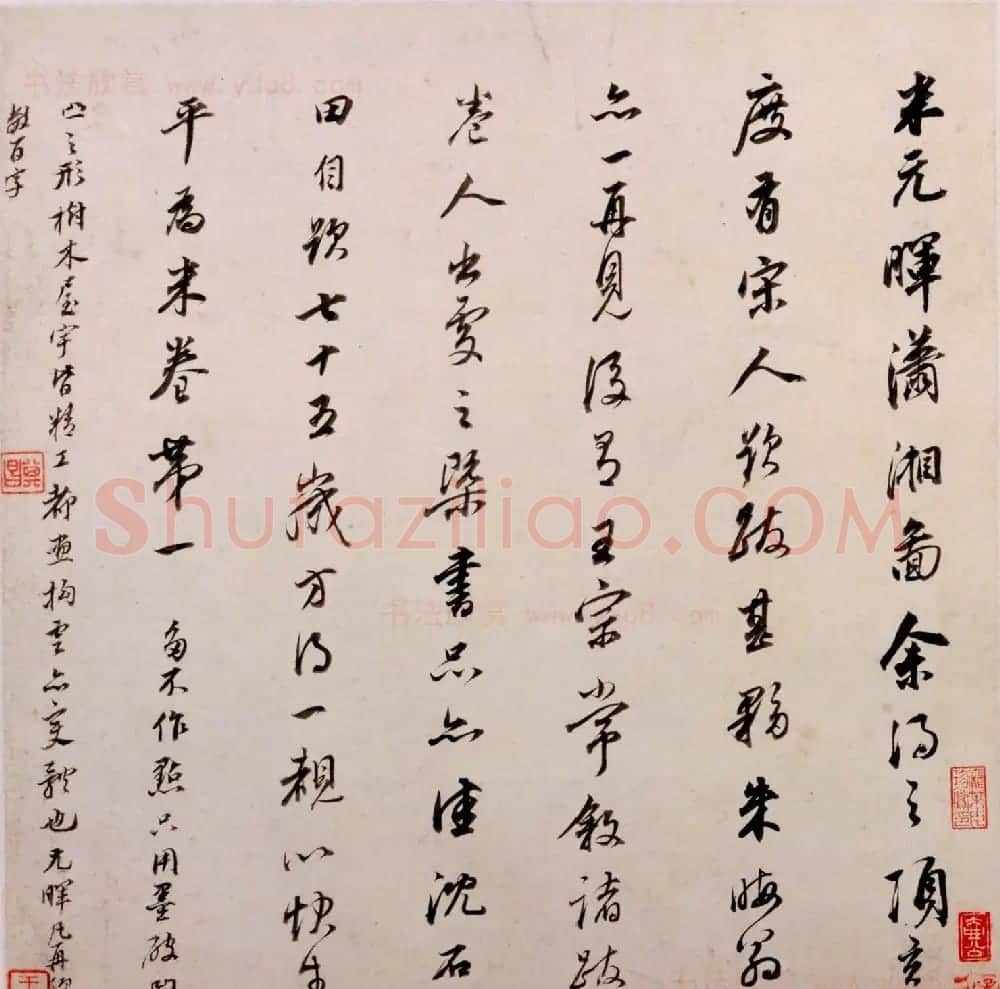 米元暉瀟湘圖余得之項玄
度有宋人題跋甚夥朱晦翁
亦一再見後有王宗常敘諸跋
卷人出處之槩書品亦佳沈石
田自題七十五歲方得一覩以快生
平為米卷第一
為不作點只用墨破
山之形樹木屋宇皆精工都畫拘雲亦變體也元暉凡再
數百字
Shufaziliao.COM
书法欣赏 www.yac8.com
书法欣赏 www.yac8.com